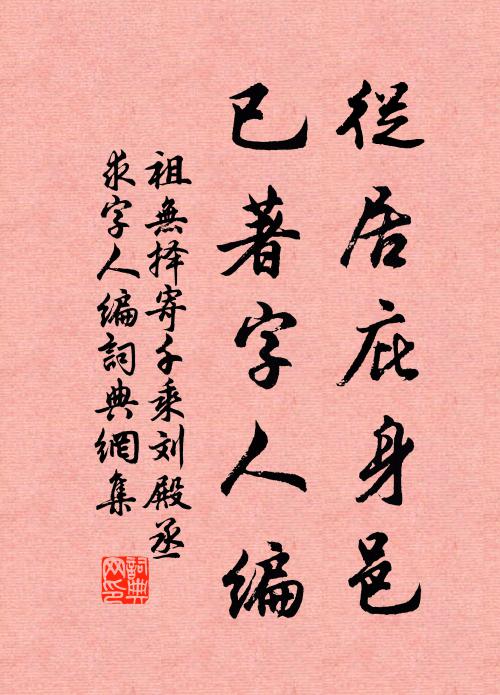 從居庇身邑
已著字人編
祖無择寄千乘刘殿丞
求字人編詞典網集
詞典网印